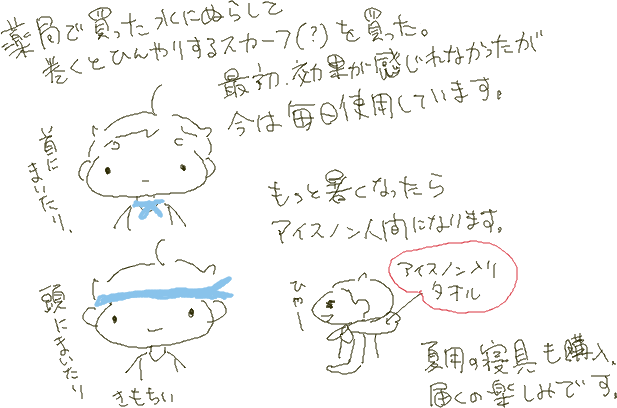 薬局で買った水にぬらして
巻くとひんやりするスカーフ(?)を買った。
最初、効果が感じれなかったが
今は毎日使用しています。
首に
まいたり、
もっと暑くなったら
アイスノン人間になります。
アイスノン入り
タオル
ひゃー
頭にまいたり
きもちい
夏用の寝具も購入、
届くの楽しみです。